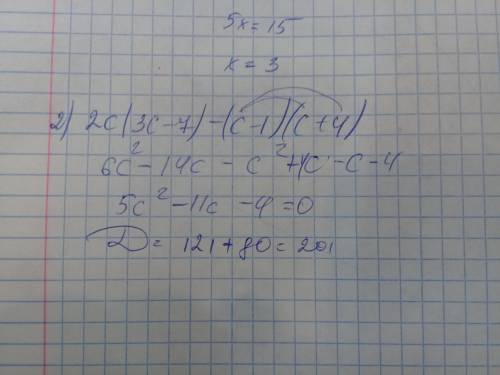 5x = 15
x = 3
2) 2c(3c-7)-(c-1)(c+4)
6c²-14c - c²+4c-c-4
5c²-11c -4=0
D = 121+80=201